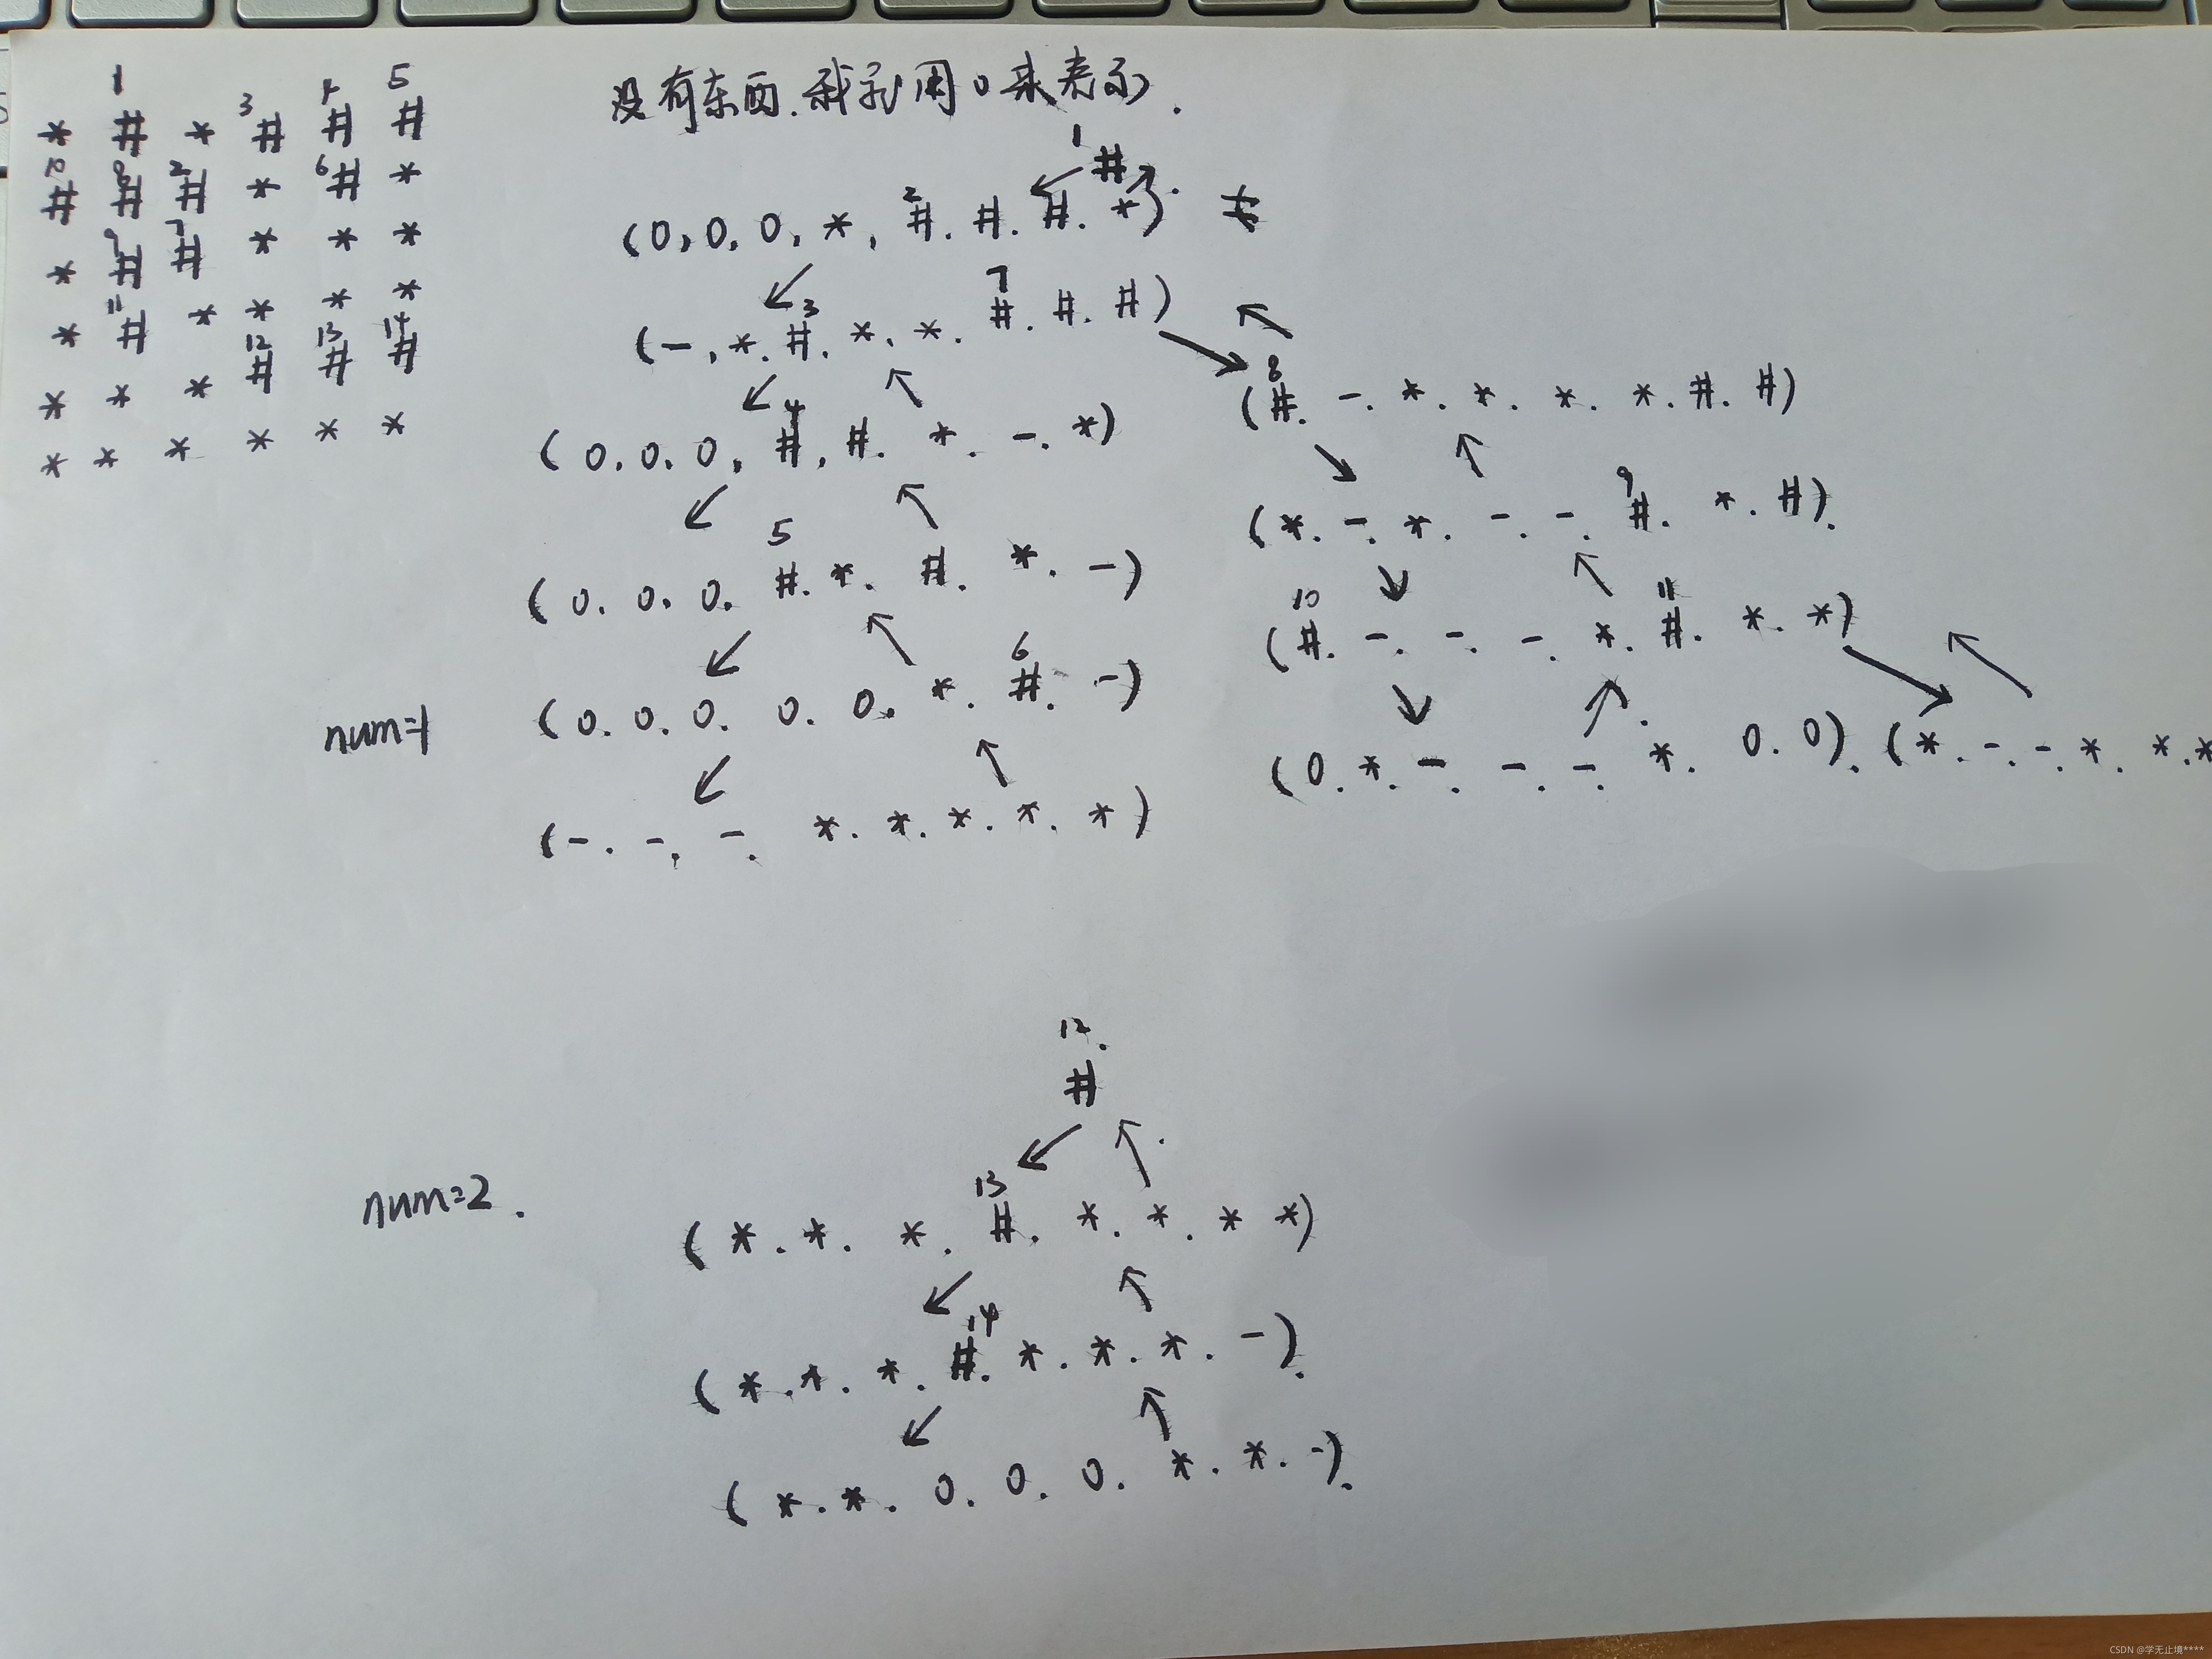 1 3 4 5
* # * # # #
10 8 2 6
# # # * # *
9 7
* # # * * *
11
* # * * * *
12 13 14
* * * # # #
* * * * * *
没有东西.我们用0来表示.
1
#
2
(0, 0, 0, *, #. #. #. *).
3 7
(-, *. #. *. *. #. #. #)
4
(0. 0. 0, #, #. *. -. *)
5
(0. 0. 0. #. *. #. *. -)
6
num=1 (0. 0. 0. 0. 0. *. #. -)
(-. -, -. *. *. *. *. *)
8
(#. -. *. *. *. *. #. #)
9
(*. -. *. -. -. #. *. #).
10 11
(#. -. -. -. *. #. *. *)
(0. *. -. -. -. *. 0. 0). (*. -. -. *. *. *
12.
#
num=2.
13
(*. *. *. #. *. *. * *)
14
(*. *. *. #. *. *. *. -).
(*. *. 0. 0. 0. *. *. -).
CSDN @学无止境****